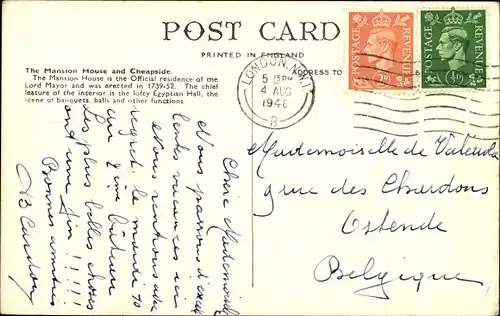 POST CARD
PRINTED IN ENGLAND
The Mansion House and Cheapside.
The Mansion House is the Official residence of the
Lord Mayor and was erected in 1739-52. The chief
feature of the interior is the lofty Egyptian Hall, the
scene of banquets, balls and other functions
ADDRESS TO
LONDON. N.W.1.
5 15PM
4 AUG
1946
B
POSTAGE REVENUE
POSTAGE REVENUE
Chère Mademoiselle
Nous passons d'excel
lentes vacances ici
Nous rentrons au
regret le mardi 20
au
Les plus belles choses
ont une fin !!!!
Bonnes amitiés
Mademoiselle de
rue des Chardons
Ostende
Belgique